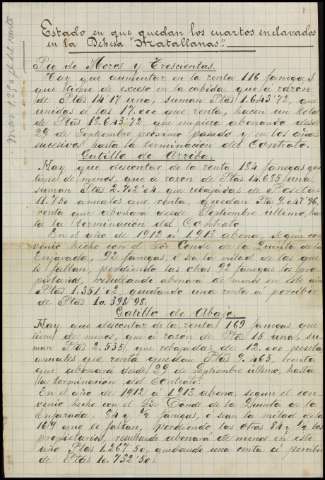 Estado en que quedan los cuartos enclavados
en la Dehesa "Fratallanas".
Pie de Moros y Trescientas.
Hay que aumentar en la renta 116 fanegas, q
que tiene de exceso en la cabida, que a razon
de Ptas 14.17 una, suman Ptas 1.643'72, que
unidas a las 17.000 que renta, hacen un total
de Ptas 18.643'72, que empieza abonando desde
29 de Septiembre proximo pasado y en los años
sucesivos hasta la terminacion del Contrato.
Catillo de Arriba.
Hay que descontar de la renta 184 fanegas que
tiene de menos, que a razon de Ptas 14.635 una,
suman Ptas 2.702'04 que rebajadas de Pesetas
11.750 anuales que renta, quedan Ptas 9.047'96,
renta que abonará desde Septiembre ultimo, hasta
la terminacion del Contrato.
En el año de 1912 a 1913 abona, segun con-
venio hecho con el Sr Conde de la Quinta de la
Enjarada, 92 fanegas, ó sea la mitad de las que
le faltan, perdiendo las otras 92 fanegas los pro-
pietarios, resultando abonará de menos en este año
Ptas 1.351'02, quedando una renta a percibir
de Ptas 10.398'98.
Catillo de Abajo.
Hay que descontar de la renta 169 fanegas que
tiene de menos, que a razon de Ptas 15 una, su-
man Ptas 2.535, que rebajadas de 12.000 pesetas
anuales que renta quedan Ptas 9.465, renta
que abonará desde 29 de Septiembre ultimo, hasta
la terminacion del Contrato.
En el año de 1912 a 1913 abona, segun el con-
venio hecho con el Sr Conde de la Quinta de la
Enjarada, 84 y ½ fanegas, ó sean la mitad de las
169 que le faltan, perdiendo las otras 84 y ½ los
propietarios, resultando abonará de menos en este
año Ptas 1.267'50, quedando una renta a percibir
de Ptas 10.732'50.